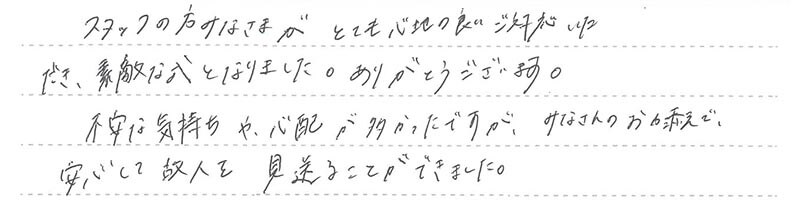 スタッフの方みなさまが とても心地の良いご対応いた
だき、素敵な式となりました。ありがとうございます。
不安な気持ちや、心配が多かったですが、みなさんのお力添えで、
安心して故人を 見送ることができました。